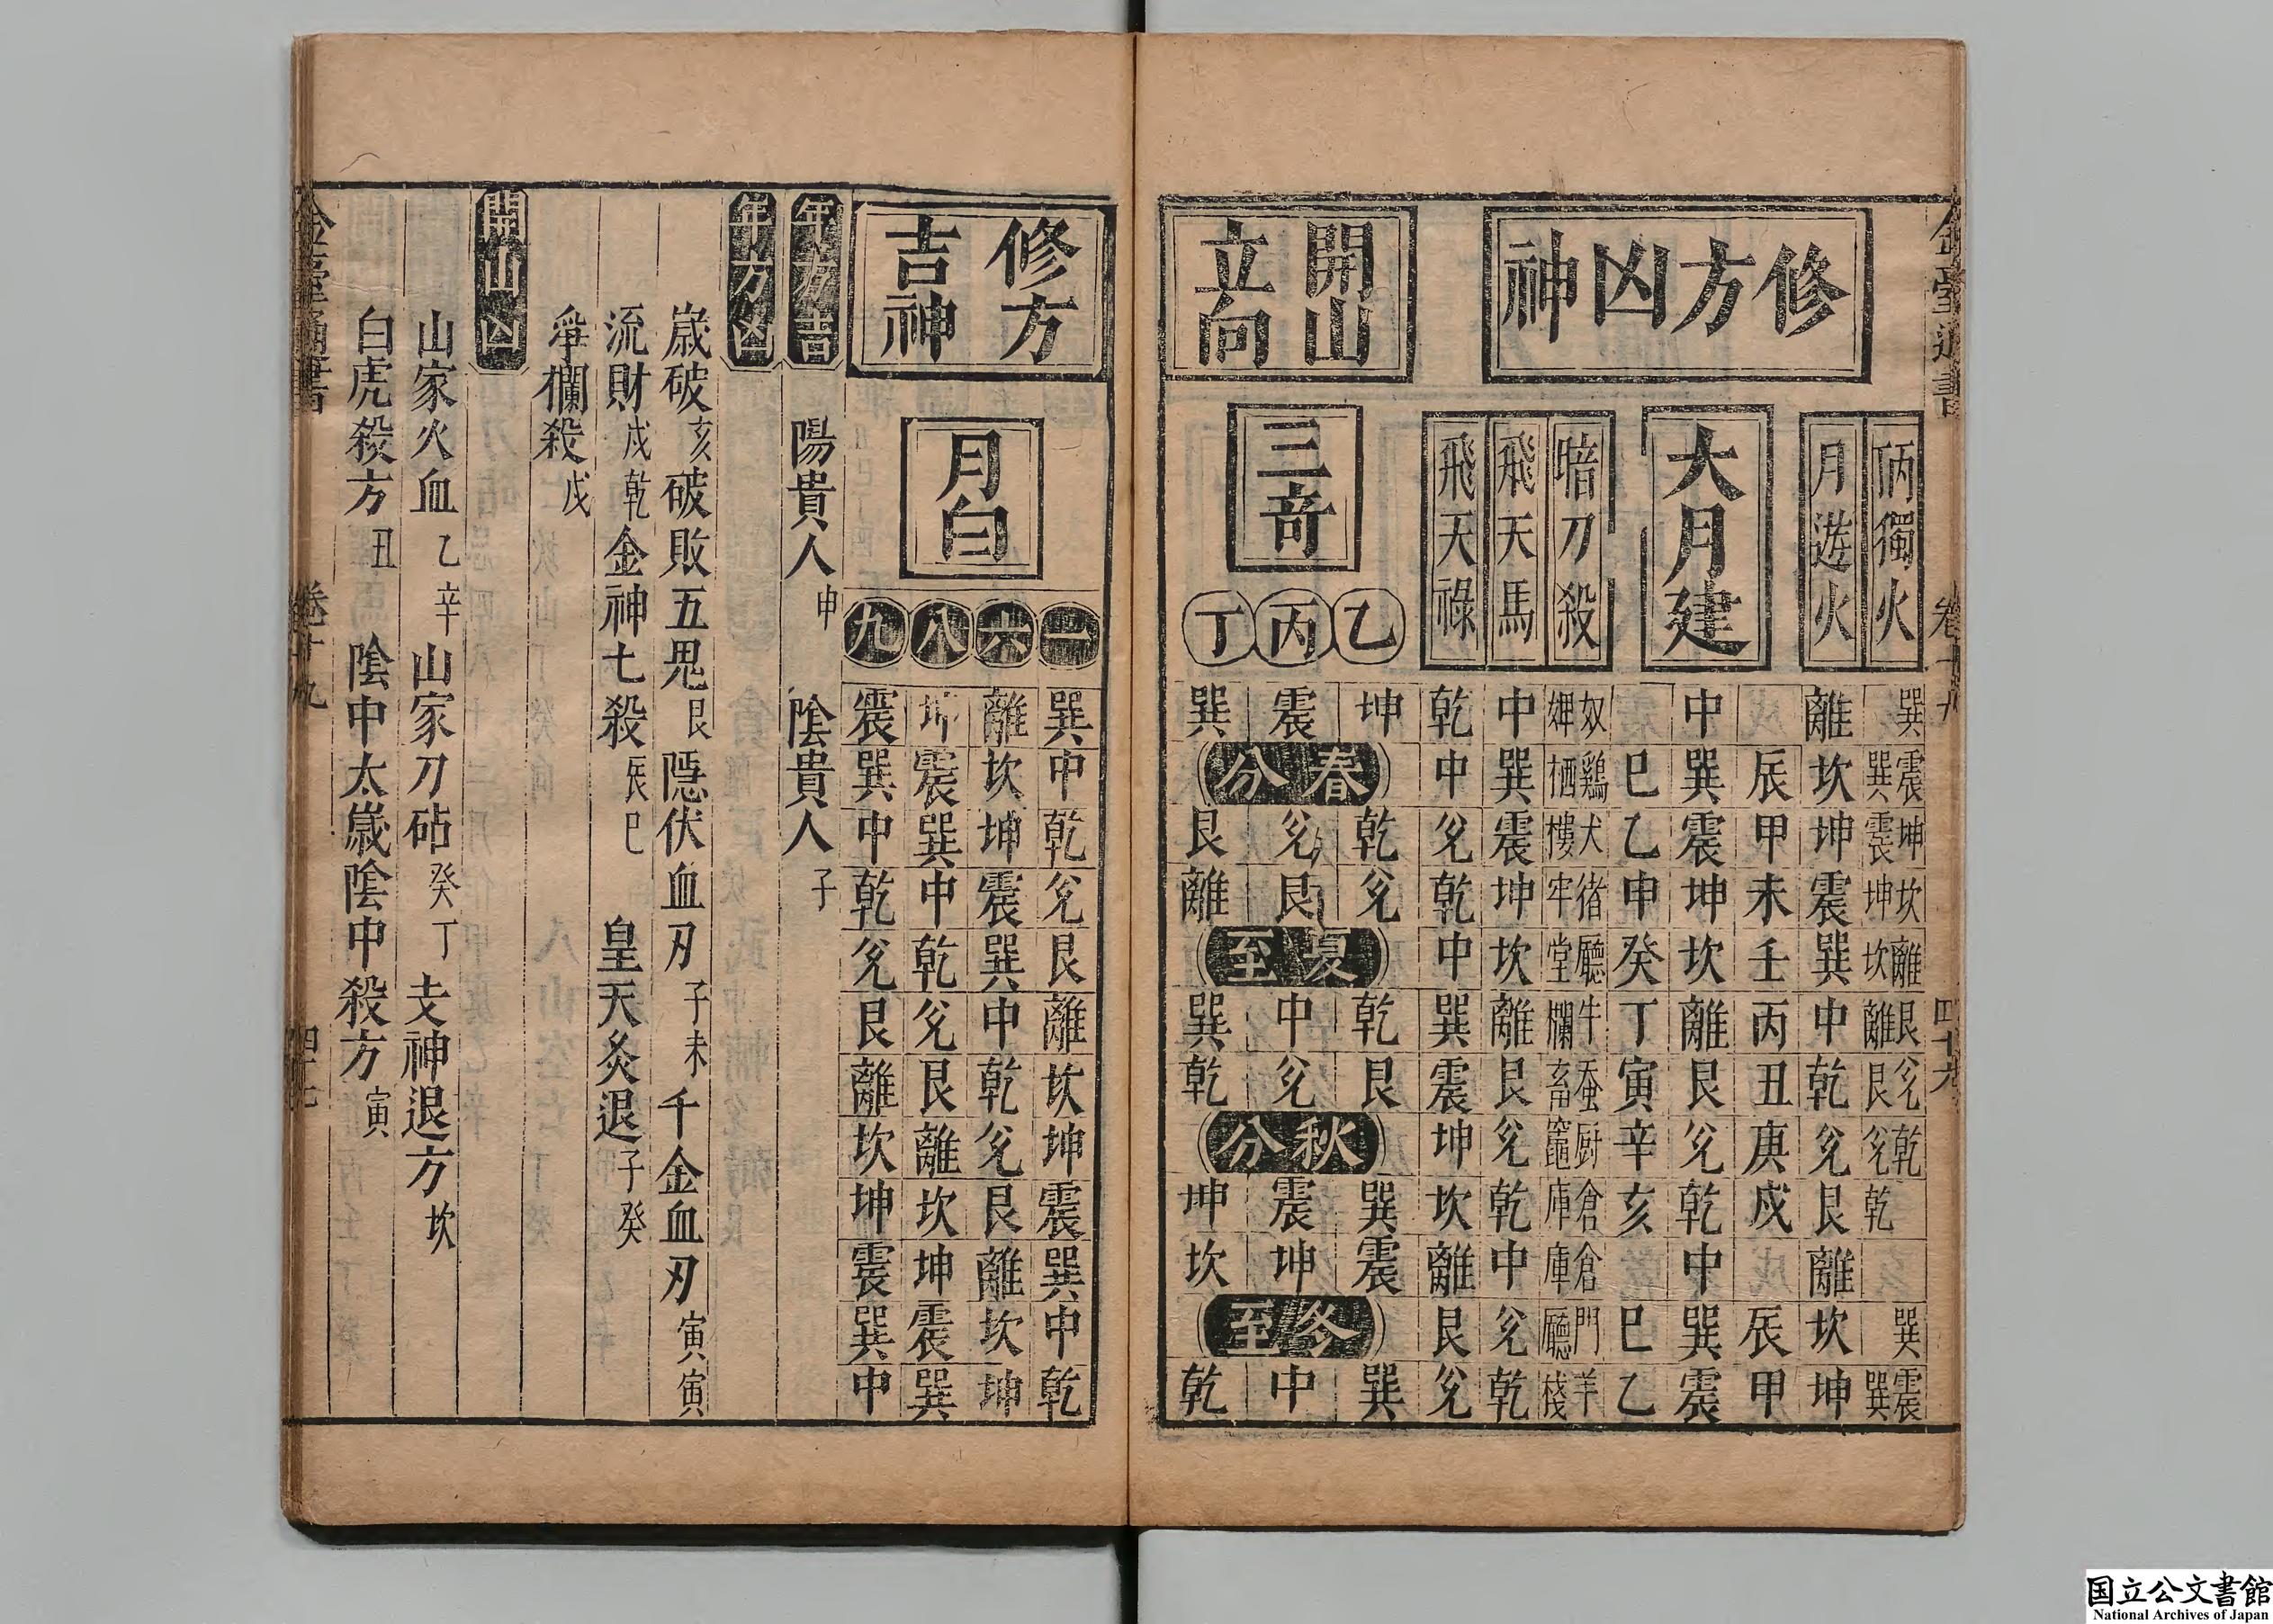 修方凶神
丙獨火
巽
震巽
坤震
坎坤
離坎
艮離
兌艮
乾兌
乾
巽
震巽
月遊火
離坎坤震巽中乾兌艮離坎坤
大月建
辰甲未壬丙丑庚戌辰甲
中巽震坤坎離艮兌乾中巽震
巳乙申癸丁寅辛亥巳乙
暗刀殺
奴婢
鷄栖
犬樓
猪牢
廳堂
牛欄
蚕畜
厨竈
倉庫
倉庫
門廳
羊棧
飛天馬
中巽震坤坎離艮兌乾中兌乾
飛天祿
乾中兌乾中巽震坤坎離艮兌
開山立向
三奇
乙
坤
乾兌
乾艮
巽震
巽
丙
震
兌艮
中兌
震坤
中
丁
巽
艮離
巽乾
坤坎
乾
春分
夏至
秋分
冬至
修方吉神
月白
一
巽中乾兌艮離坎坤震巽中乾
六
離坎坤震巽中乾兌艮離坎坤
八
坤震巽中乾兌艮離坎坤震巽
九
震巽中乾兌艮離坎坤震巽中
年方吉
陽貴人申 陰貴人子
年方凶
歲破亥破敗五鬼艮隱伏血刃子未千金血刃寅寅
流財戌乾金神七殺辰巳 皇天炙退子癸
爭欄殺戌
開山凶
山家火血乙辛山家刀砧癸丁支神退方坎
白虎殺方丑 陰中太歲陰中殺方寅
卷十九
国立公文書館
National Archives of Japan